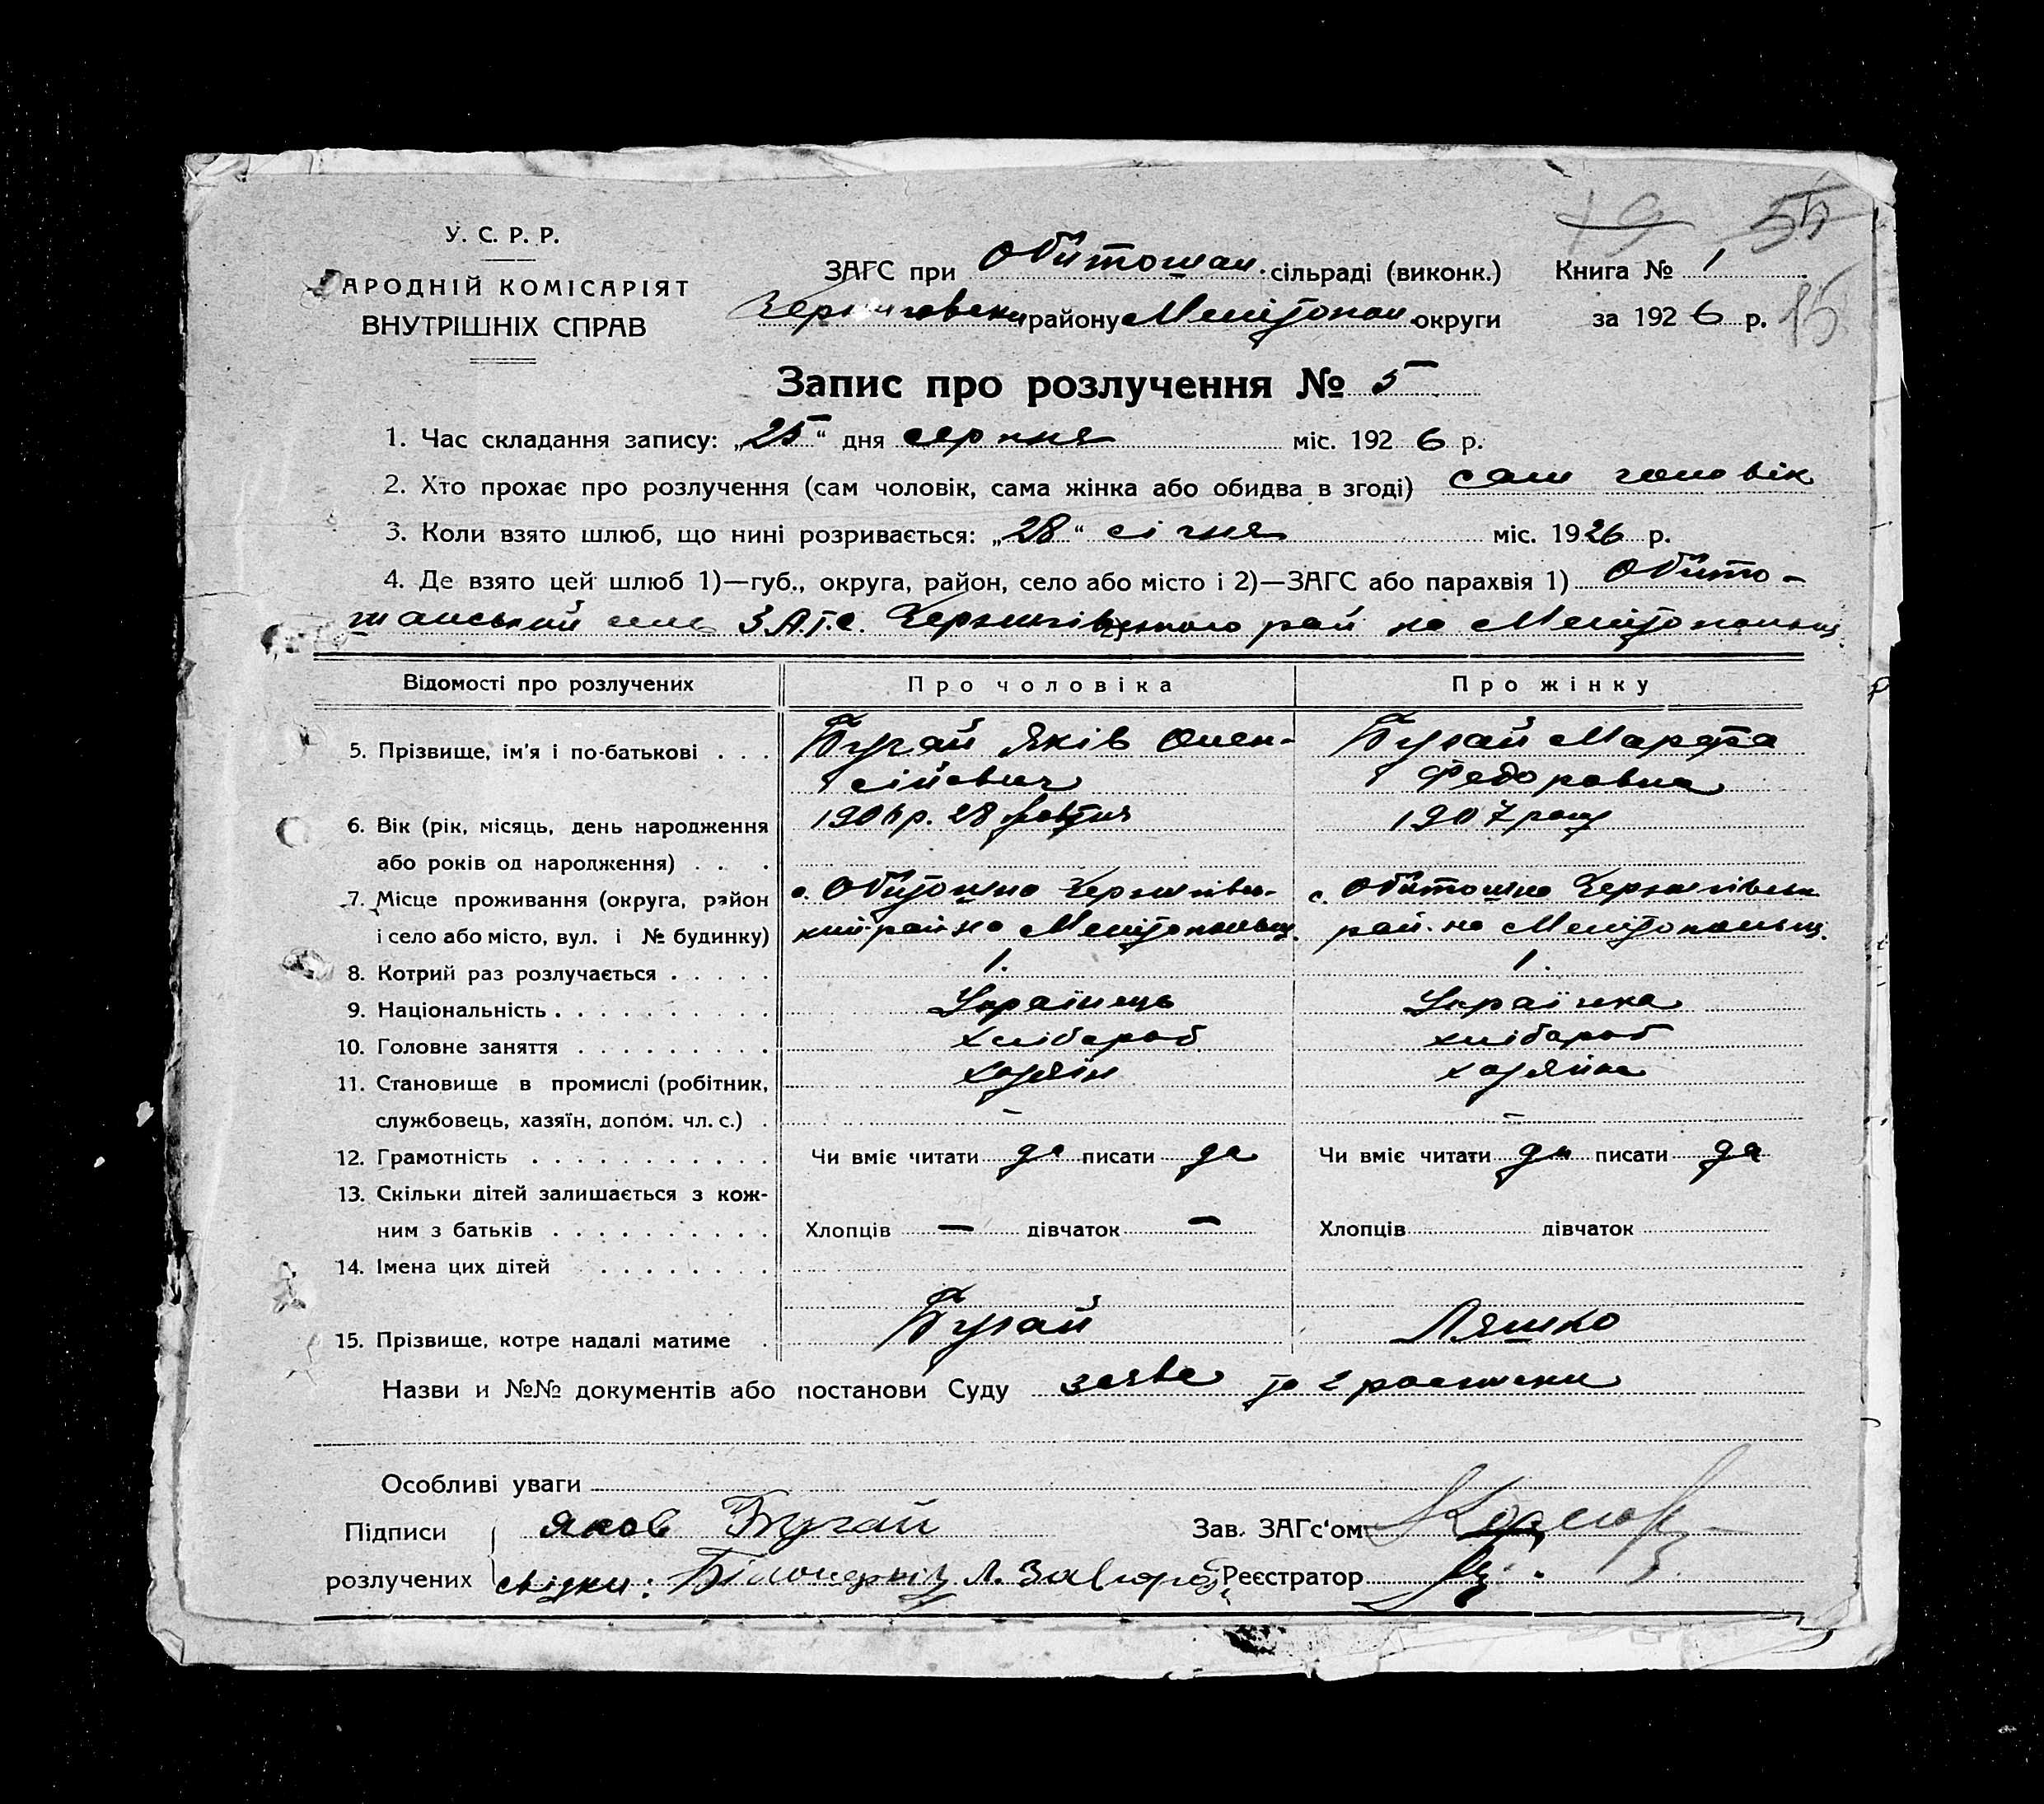 19 55
У. С. Р. Р.
АРОДНІЙ КОМІСАРІЯТ
ВНУТРІШНІХ СПРАВ
ЗАГС при Обитошан. сільраді (виконк.) Книга № 1
району Меліт­опол округи за 1926 р. 15
Запис про розлучення № 5
1. Час складання запису: „25“ дня серпня міс. 1926 р.
2. Хто прохає про розлучення (сам чоловік, сама жінка або обидва в згоді) сам чоловік
3. Коли взято шлюб, що нині розривається: „28“ січня міс. 1926 р.
4. Де взято цей шлюб 1)—губ., округа, район, село або місто і 2)—ЗАГС або парахвія 1) Обито-
шанський З.А.Г.С. Чернигівського рай на Мелітопольщ.
Відомості про розлучених Про чоловіка Про жінку
5. Прізвище, ім'я і по-батькові . . . Бугай Яків Олек- Бугай Марфа
сійович Федоровна
6. Вік (рік, місяць, день народження 28 жовтня 1907 року
або років од народження) . . .
7. Місце проживання (округа, район с. Обитошно Чернигівсь- с. Обитошно Чернигівськ
і село або місто, вул. і № будинку) кий рай на Мелітопольщ. рай. на Мелітопольщ.
8. Котрий раз розлучається . . . . . 1. 1.
9. Національність . . . . . . . . . . Українець Українка
10. Головне заняття . . . . . . . . . хлібороб хлібороб
11. Становище в промислі (робітник, хазяїн хазяйка
службовець, хазяїн, допом. чл. с.) . – –
12. Грамотність . . . . . . . . . . . Чи вміє читати да писати да Чи вміє читати да писати да
13. Скільки дітей залишається з кож-
ним з батьків . . . . . . . . . . Хлопців — дівчаток — Хлопців дівчаток
14. Імена цих дітей . . . . . . . .
15. Прізвище, котре надалі матиме . Бугай Ляшко
Назви и №№ документів або постанови Суду заява та 2 росписки
Особливі уваги
Підписи Яков Бугай Зав. ЗАГс'ом
розлучених свідки: Реєстратор